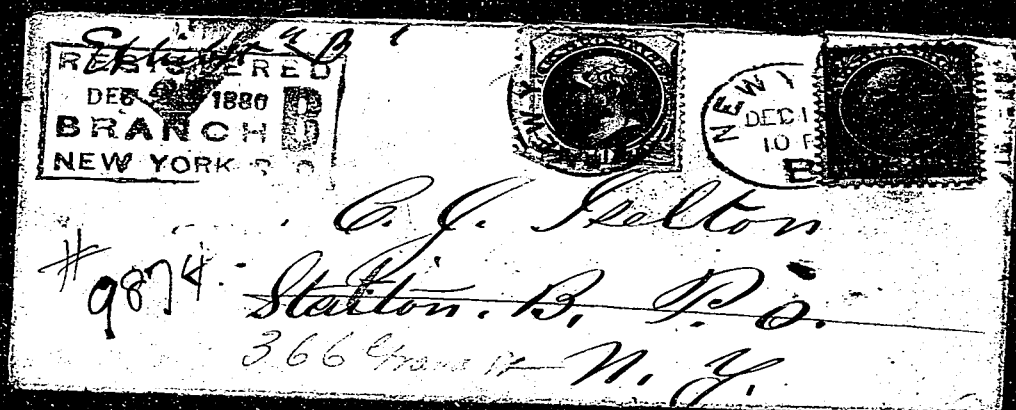 Exhibit "B"
REGISTERED
DEC 1880
BRANCH B
NEW YORK P. O.
NEW Y
DEC 1
10 P
B
C. J. Helton
# 9874.
Station. B. P. O.
366 Grand St
N. Y.